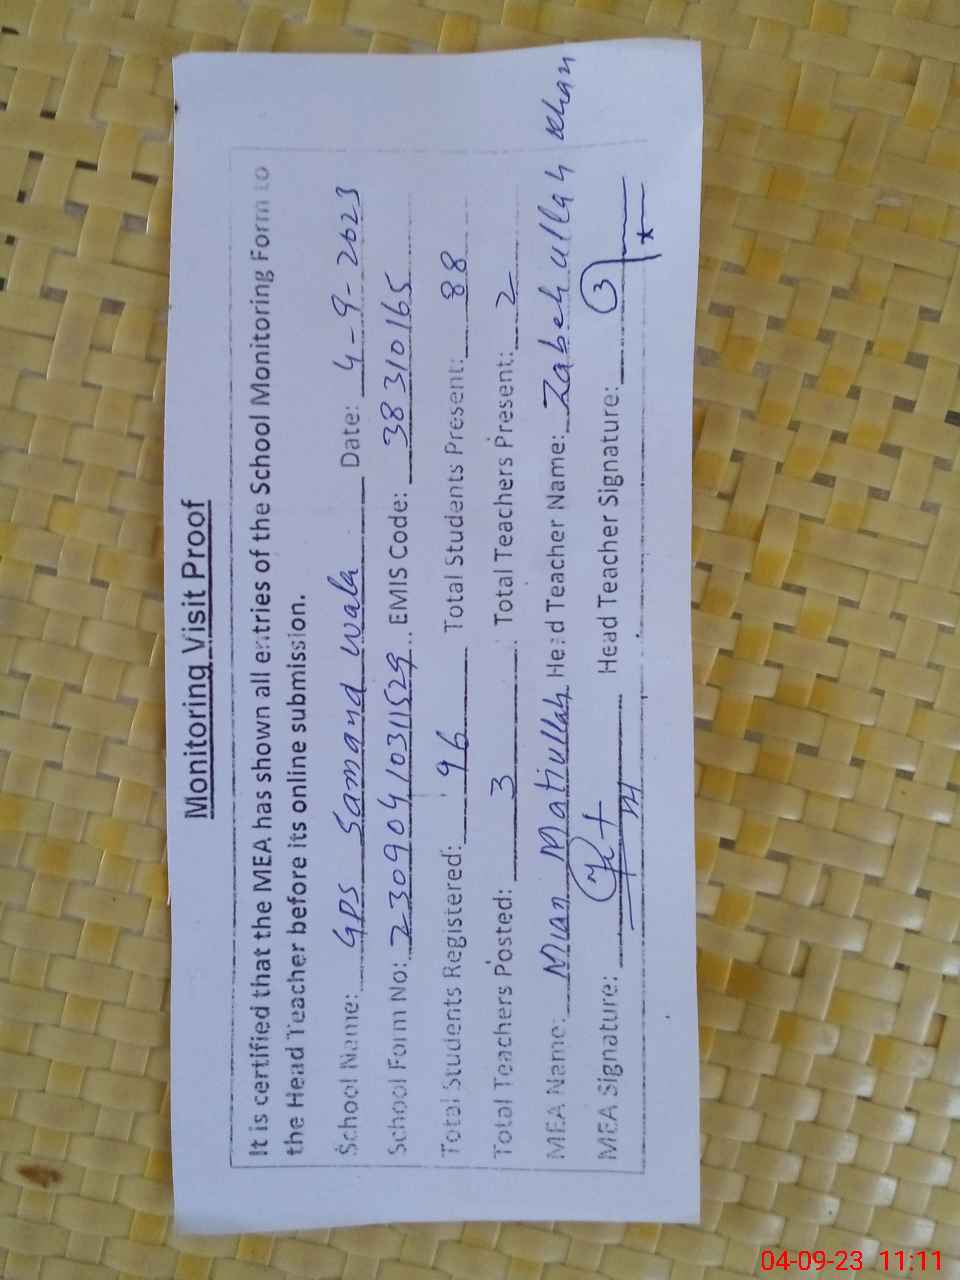 Monitoring Visit Proof
It is certified that the MEA has shown all entries of the School Monitoring Form to
the Head Teacher before its online submission.
School Name: GPS Samand wala Date: 4-9-2023
School Form No: 23090410311529 EMIS Code: 38310165
Total Students Registered: 96 Total Students Present: 88
Total Teachers Posted: 3 Total Teachers Present: 2
MEA Name: Mian Matiullah Head Teacher Name: Zabeh ullah khan
MEA Signature: Head Teacher Signature:
04-09-23 11:11